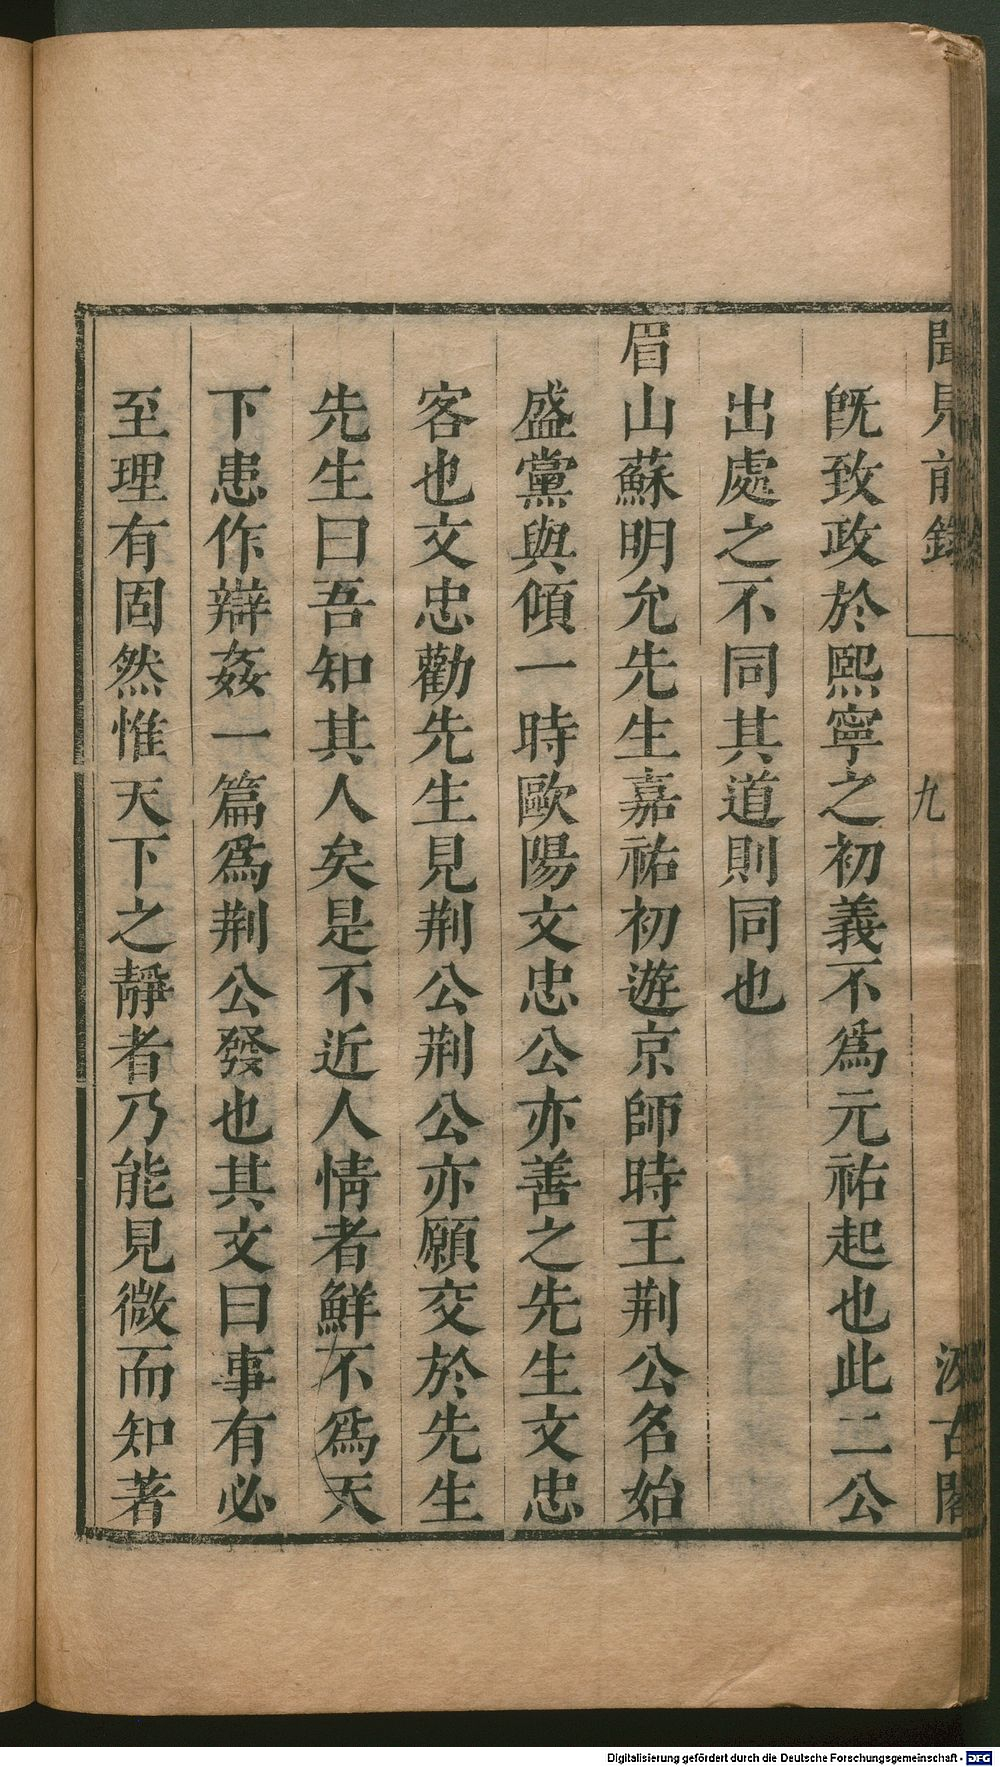 聞見前錄
九
汲古閣
旣致政於熙寧之初義不爲元祐起也此二公
出處之不同其道則同也
眉山蘇明允先生嘉祐初遊京師時王荆公名始
盛黨與傾一時歐陽文忠公亦善之先生文忠
客也文忠勸先生見荆公荆公亦願交於先生
先生曰吾知其人矣是不近人情者鮮不爲天
下患作辯姦一篇爲荆公發也其文曰事有必
至理有固然惟天下之靜者乃能見微而知著
Digitalisierung gefördert durch die Deutsche Forschungsgemeinschaft - DFG